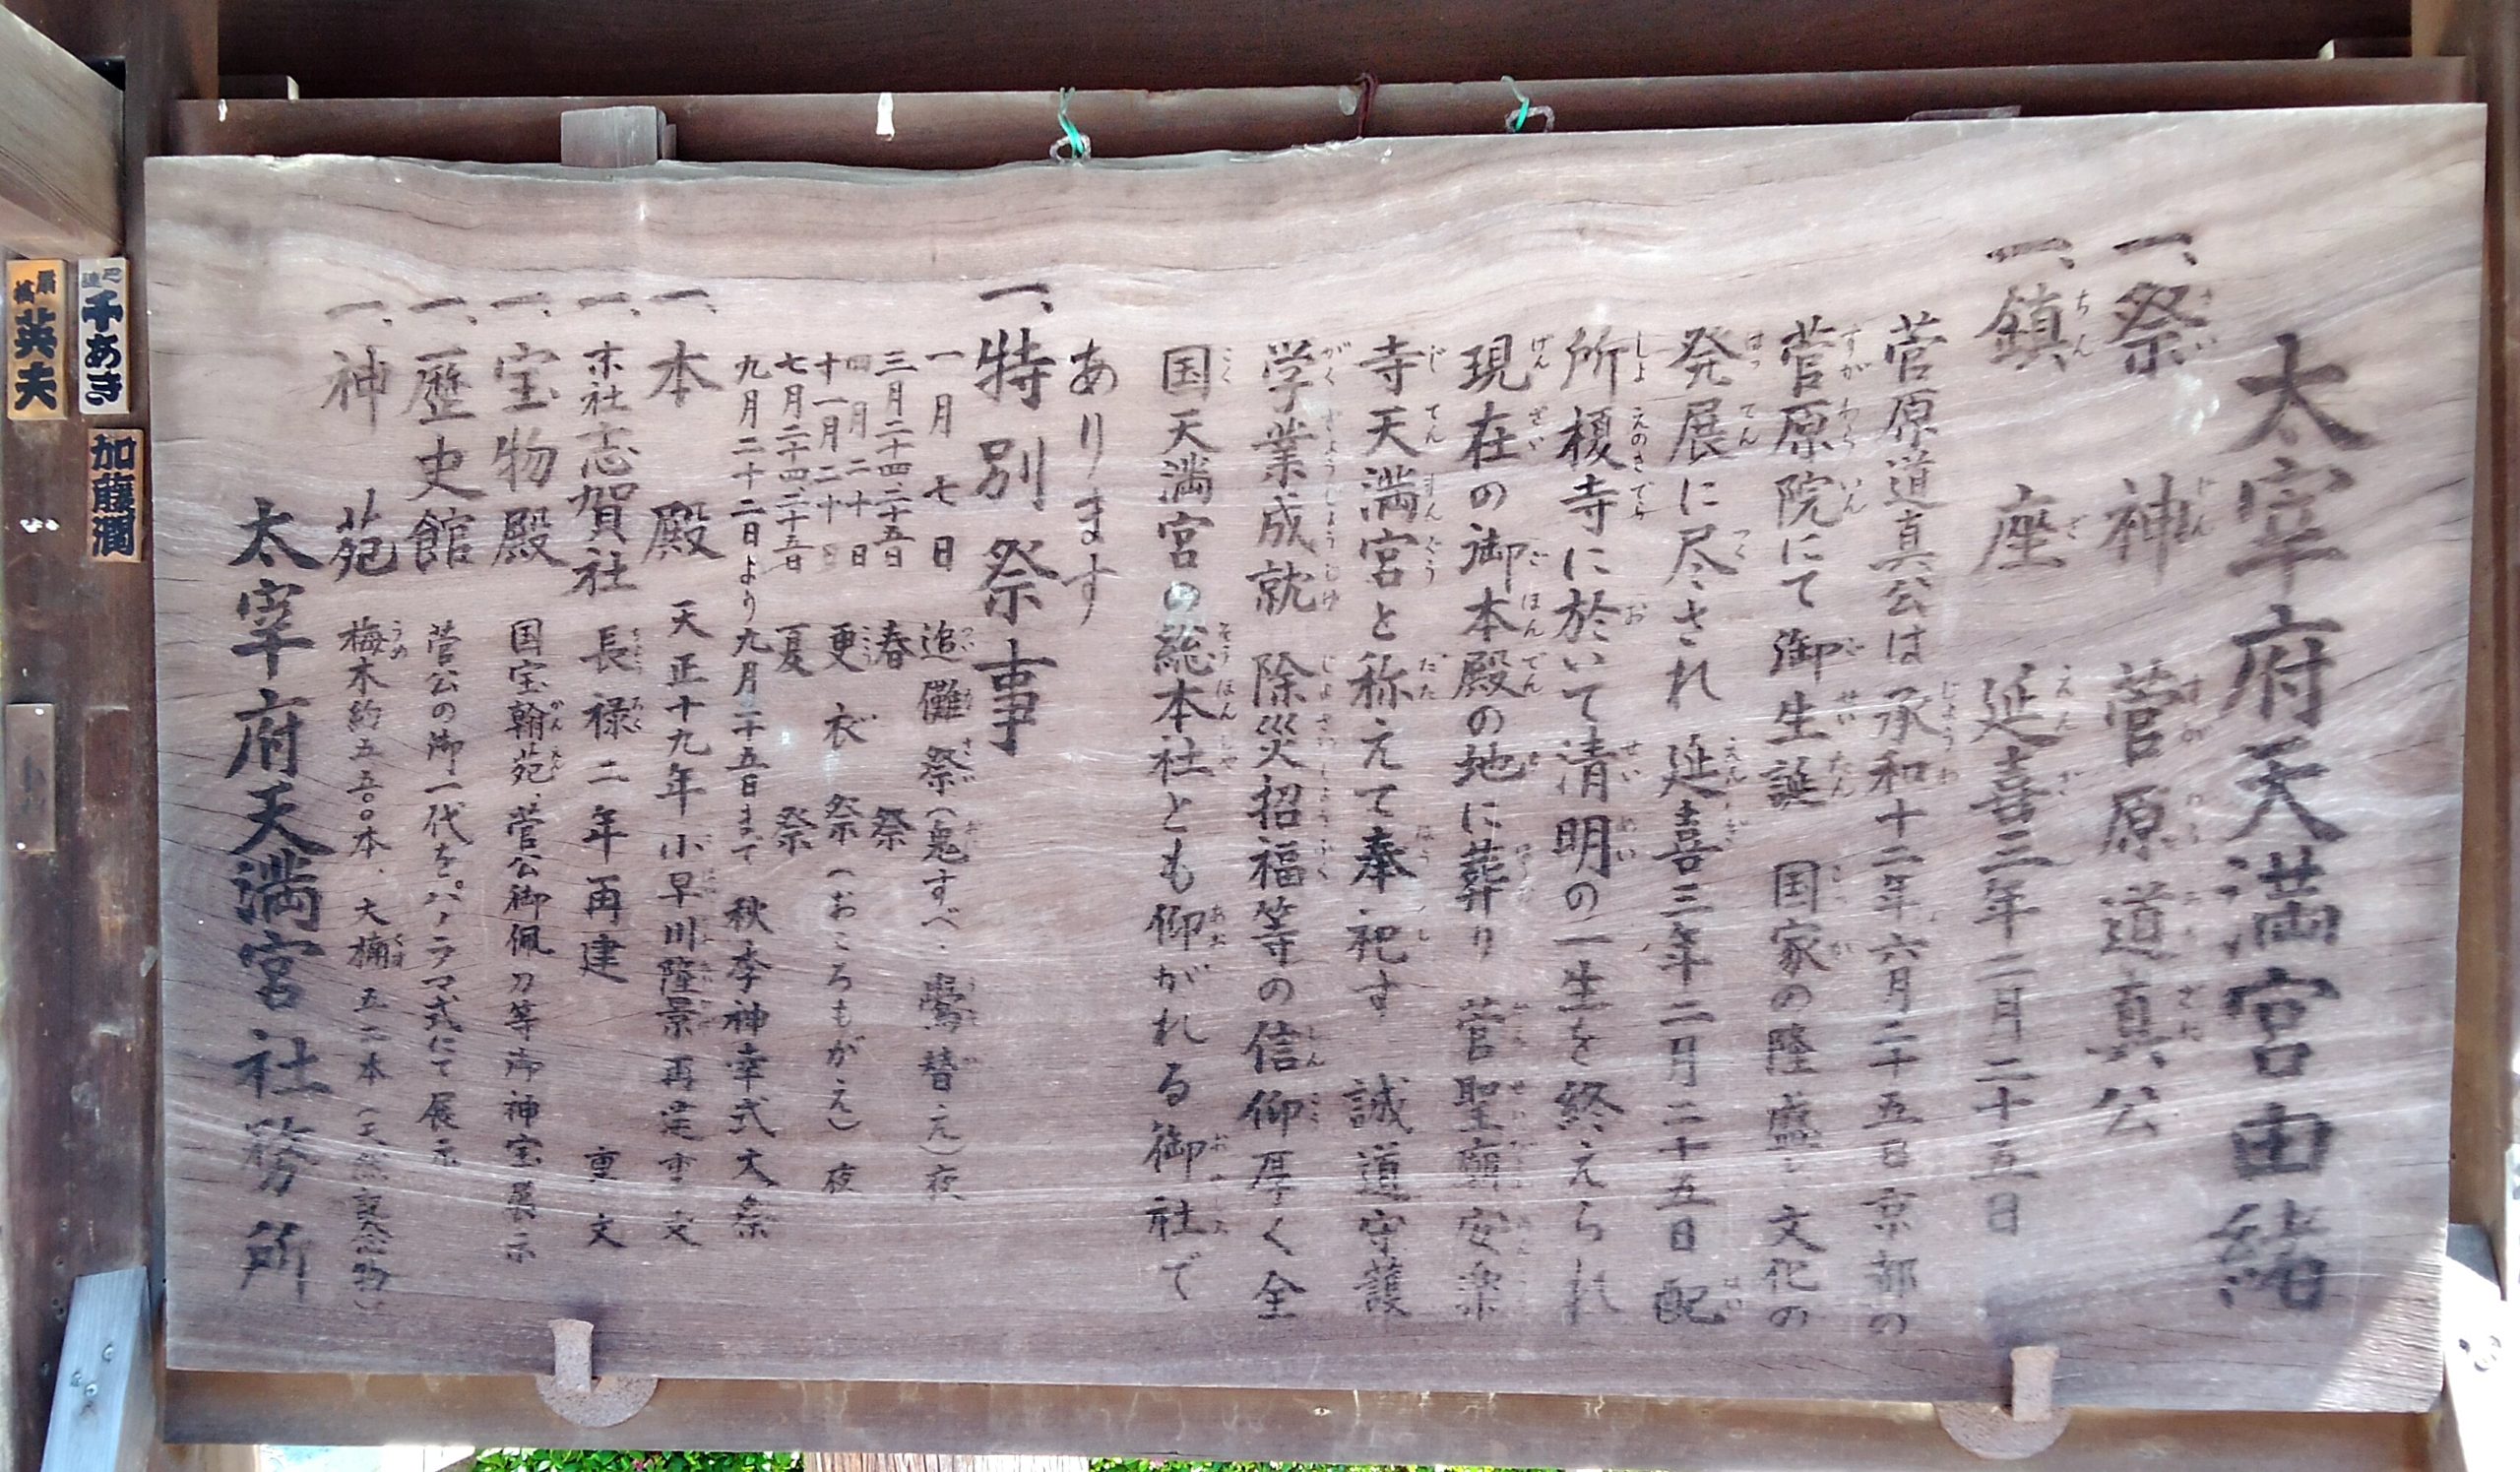 太宰府天満宮由緒
一、祭神 菅原道真公
一、鎮座 延喜三年二月二十五日
菅原道真公は承和十二年六月二十五日京都の
菅原院にて御生誕 国家の隆盛と文化の
発展に尽され 延喜三年二月二十五日 配
所榎寺に於いて清明の一生を終えられ
現在の御本殿の地に葬り 菅聖廟安楽
寺天満宮と称えて奉祀す 誠道守護
学業成就 除災招福等の信仰厚く全
国天満宮の総本社とも仰がれる御社で
あります
一、特別祭事
一月七日 追儺祭(鬼すべ・鷽替え)夜
三月二十四、二十五日 春祭
四月二十日
十一月二十日 更衣祭(おころもがえ)夜
七月二十四、二十五日 夏祭
九月二十二日より九月二十五日まで 秋季神幸式大祭
一、本殿 天正十九年 小早川隆景再建 重文
一、末社志賀社 長禄二年再建 重文
一、宝物殿 国宝翰苑、菅公御佩刀等御神宝展示
一、歴史館 菅公の御一代をパノラマ式にて展示
一、神苑 梅木約五五〇〇本、大楠五二本(天然記念物)
太宰府天満宮社務所
千あき
英夫
加藤潤